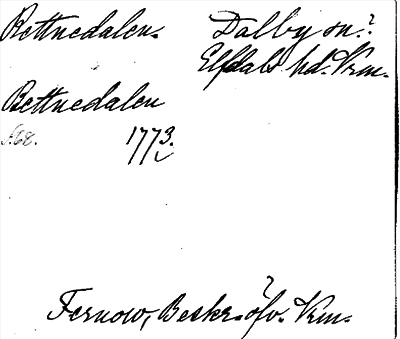 Rettnedalen. Dalby sn.?
Elfdals hd. Vrm.
Bettnedalen
s. 68. 1773.
Fernow, Beskr. öfv. Vrm.